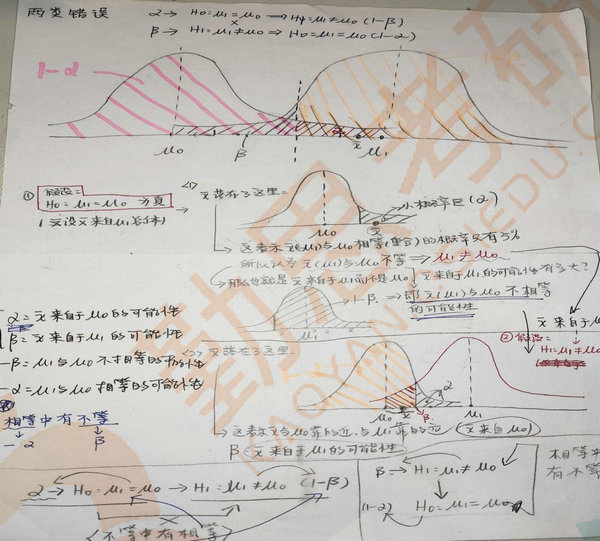 两类错误
α → H0=μ1=μ0 → H1=μ1≠μ0 (1-β)
β → H1=μ1≠μ0 → H0=μ1=μ0 (1-α)
1-α
μ0
β
x̄
μ1
①
假设=
H0=μ1=μ0 为真
<1>
x̄落在了这里=
小概率区(α)
μ0
x̄
这表示x̄(μ1)与μ0相等(重合)的概率只有5%
所以认为x̄(μ1)与μ0不等 ⇒ μ1≠μ0
那么也就是x̄来自于μ1而不是μ0
x̄来自于μ1的可能性有多大?
1-β ⇒ 即x̄(μ1)与μ0不相等
的可能性
μ1
α=x̄来自于μ0的可能性
β=x̄来自于μ1的可能性
-β=μ1与μ0不相等的可能性
-α=μ1与μ0相等的可能性
<2>
x̄落在了这里
x̄来自于μ
② 假设=
H1=μ1≠μ0
α
μ0
x̄
β
μ1
相等中有不等
-α
β
这表示x̄与μ0靠的近,与μ1靠的远
(x̄来自μ0)
β(x̄来自于μ1的可能性
α → H0=μ1=μ0 → H1=μ1≠μ0 (1-β)
<不等中有相等>
β → H1=μ1≠μ0
(1-α)
H0=μ1=μ0
相等中
有不等